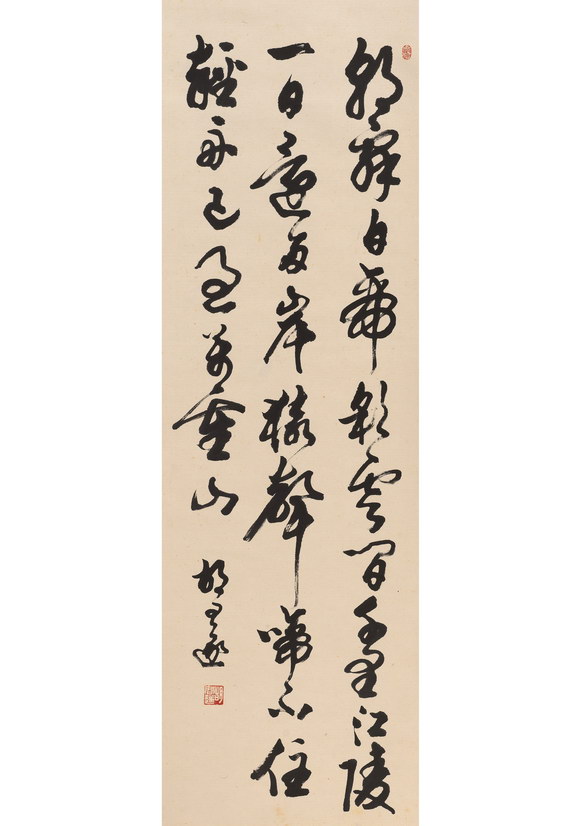 朝辭白帝彩雲間千里江陵
一日還兩岸猿聲啼不住
輕舟已過萬重山 胡